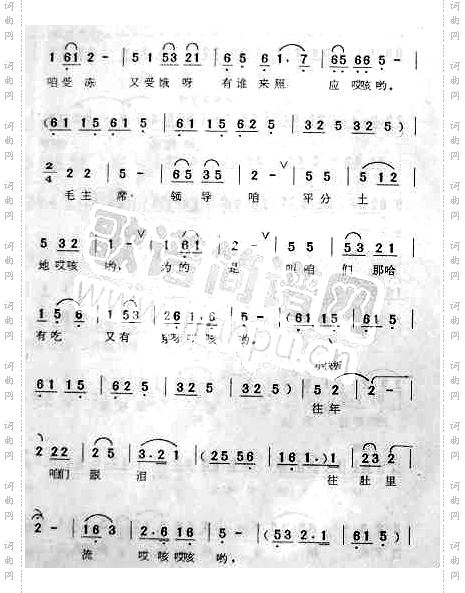 1 61 2 - | 5 1 53 21 | 65 65 61. 7 | 65 66 5 - |
咱受冻 又受饿呀 有谁来照 应哎咳哟。
(61 15 | 61 15 | 61 5 | 325 | 325 325)
2/4 2 2 | 5 - | 65 35 | 2 - ∨ | 5 5 | 5 12 |
毛主席 领导咱 平分土
5 32 | 1 - ∨ | 1 61 | 2 - ∨ | 5 5 | 53 21 |
地哎咳哟, 为的是 叫咱们那哈
15 6 | 1 53 | 261. 6 | 5 - | (61 15 | 61 5 |
有吃 又有 哎咳哟。
61 15 | 625 5 | 325 | 325 325) | 5 2 | 2 - |
往年
2 22 | 2 5 | 3.2 1 | (25 56 | 16 1.) 1 | 23 2 |
咱们眼泪 往肚里
2 - | 16 3 | 2.6 16 | 5 - | (53 2.1 | 61 5 |
流 哎咳哎咳哟。
歌谱简谱网
词曲网